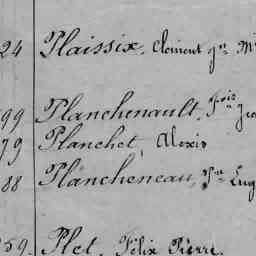 24 Plaissix, Clement
99 Planchenault, Fois
79 Planchet, Alexis
88 Plancheneau,
59. Plet, Félix Pierre.